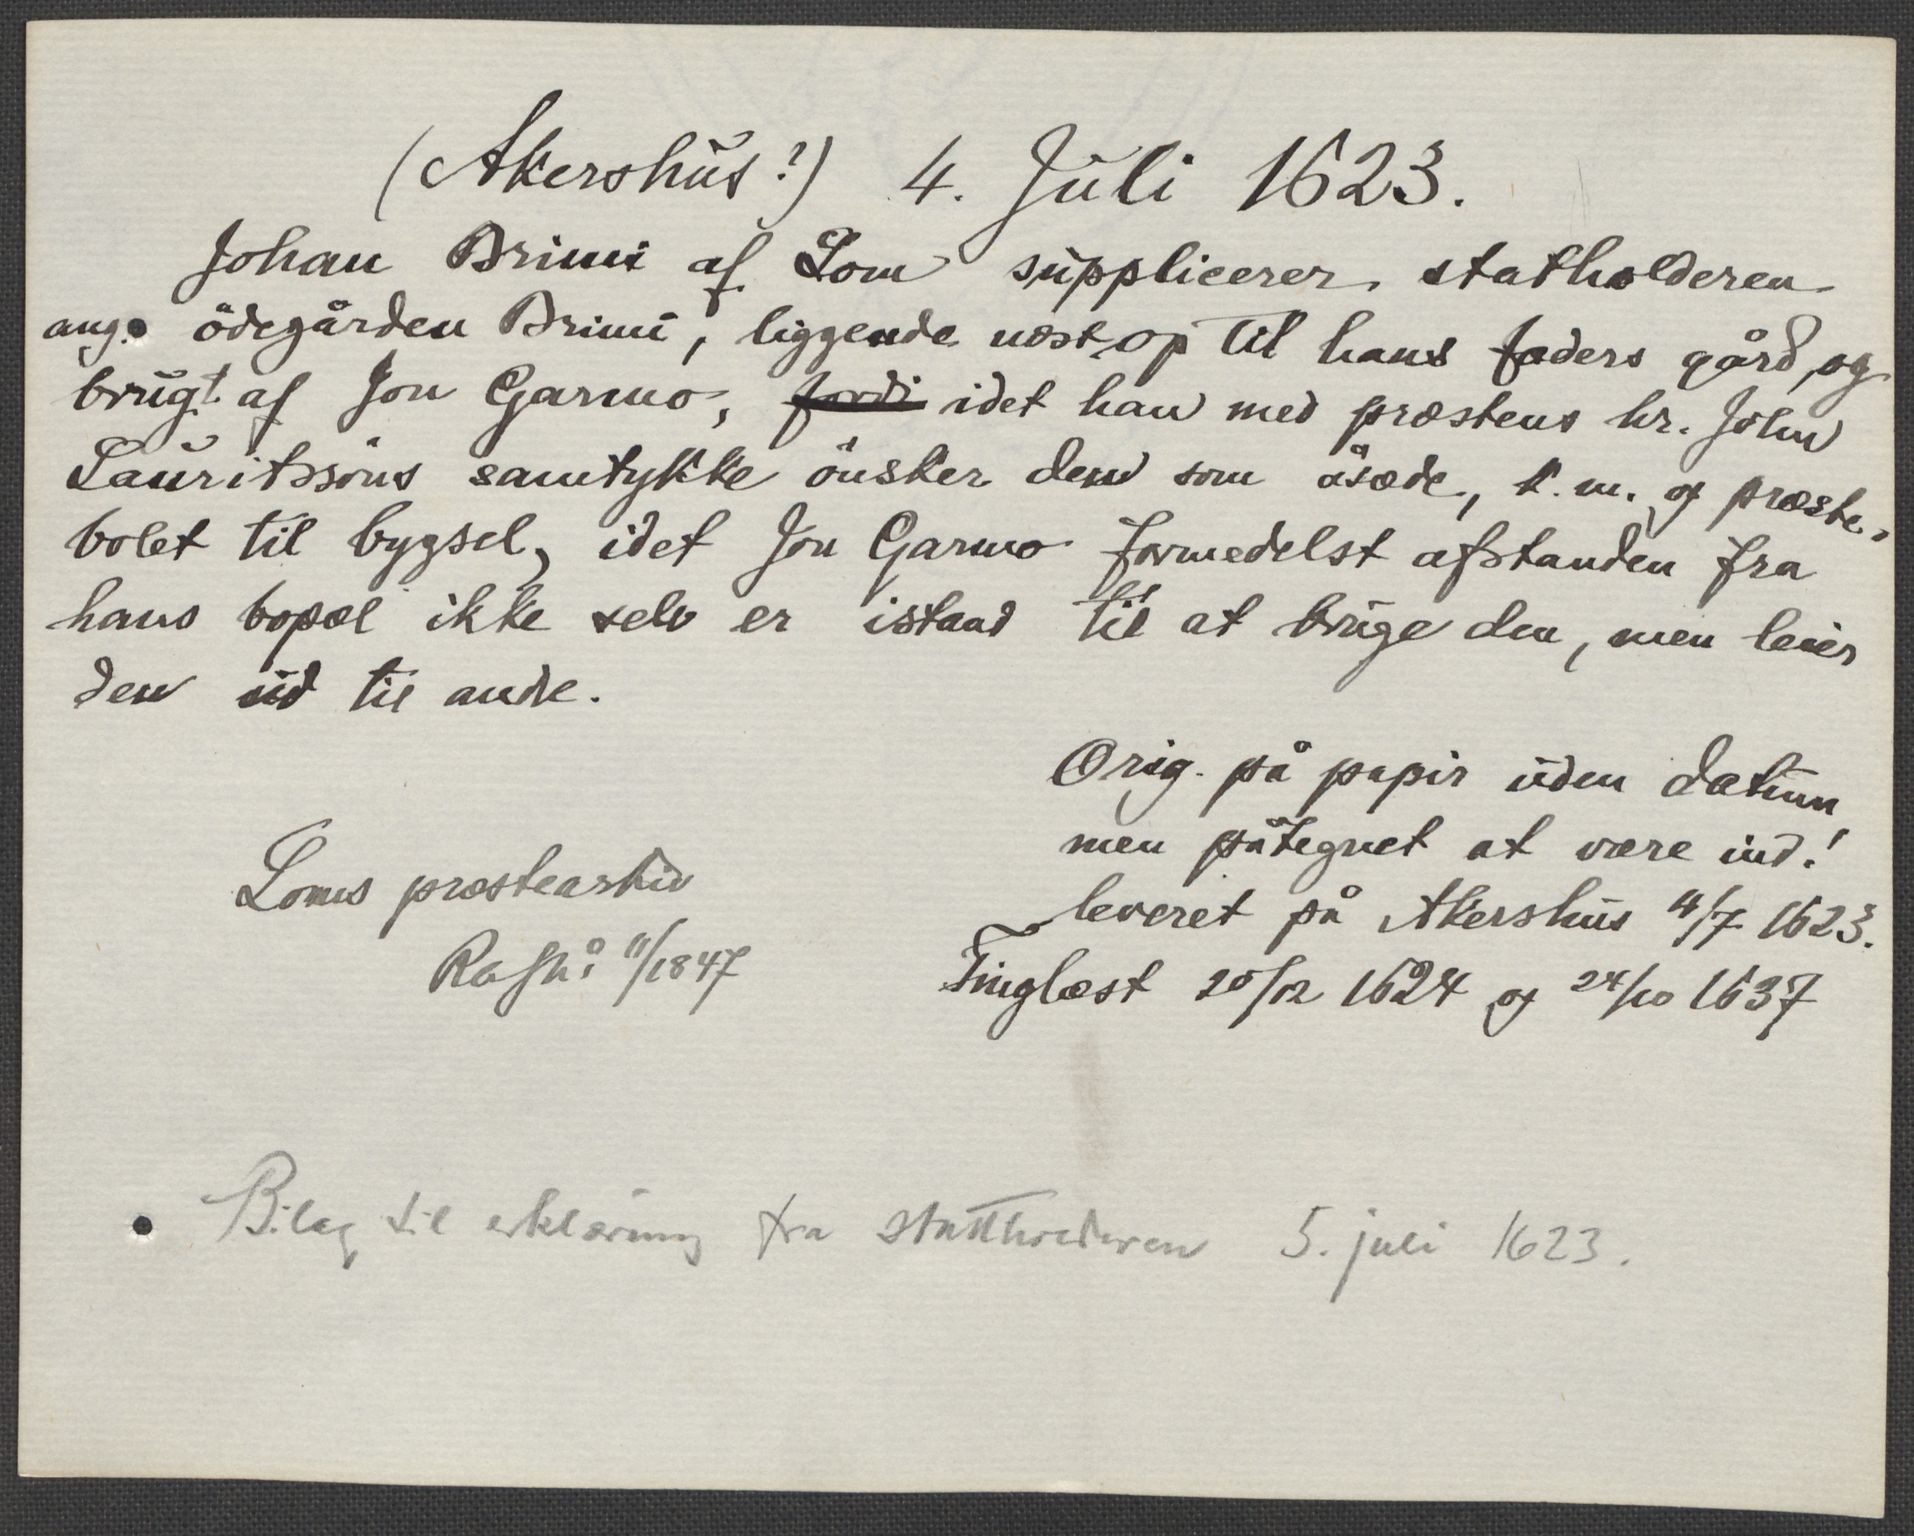 (Akershus?) 4. Juli 1623.
Johan Brimi af Lom supplicerer statholderen
ang. ödegården Brimi, liggende næst op til hans faders gård, og
brugt af Jon Garmo, fordi idet han med præstens hr. John
Lauritssöns samtykke önsker den som åsæde, k. m. og præste-
bolet til bygsel, idet Jon Garmo formedelst afstanden fra
hans bopæl ikke selv er istand til at bruge den, men leier
den ud til andre.
Orig. på papir uden datum
men påtegnet at være ind-
leveret på Akershus 4/7 1623.
Tinglæst 20/12 1624 og 24/10 1637
Loms præstearkiv
11/1847
Bilag til erklæring fra stattholderen 5. juli 1623.